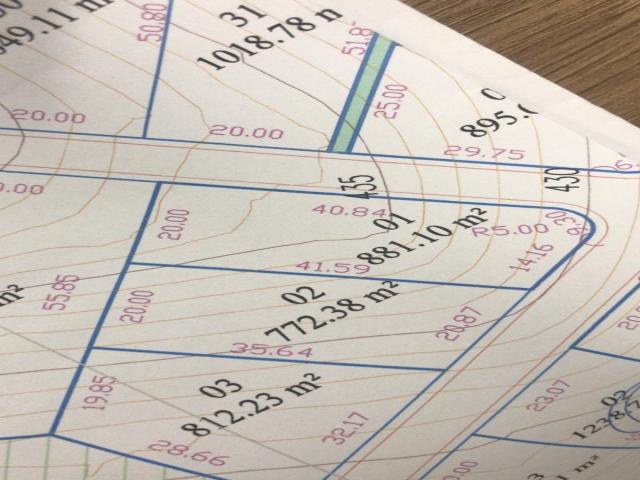 50.80
31
1018.78
25.00
20.00
20.00
29.75
435
430
40.84
01
881.10 m²
R5.00
14.16
20.00
41.59
02
772.38 m²
20.87
55.85
20.00
35.64
03
812.23 m²
19.85
28.66
32.17
23.07
m²